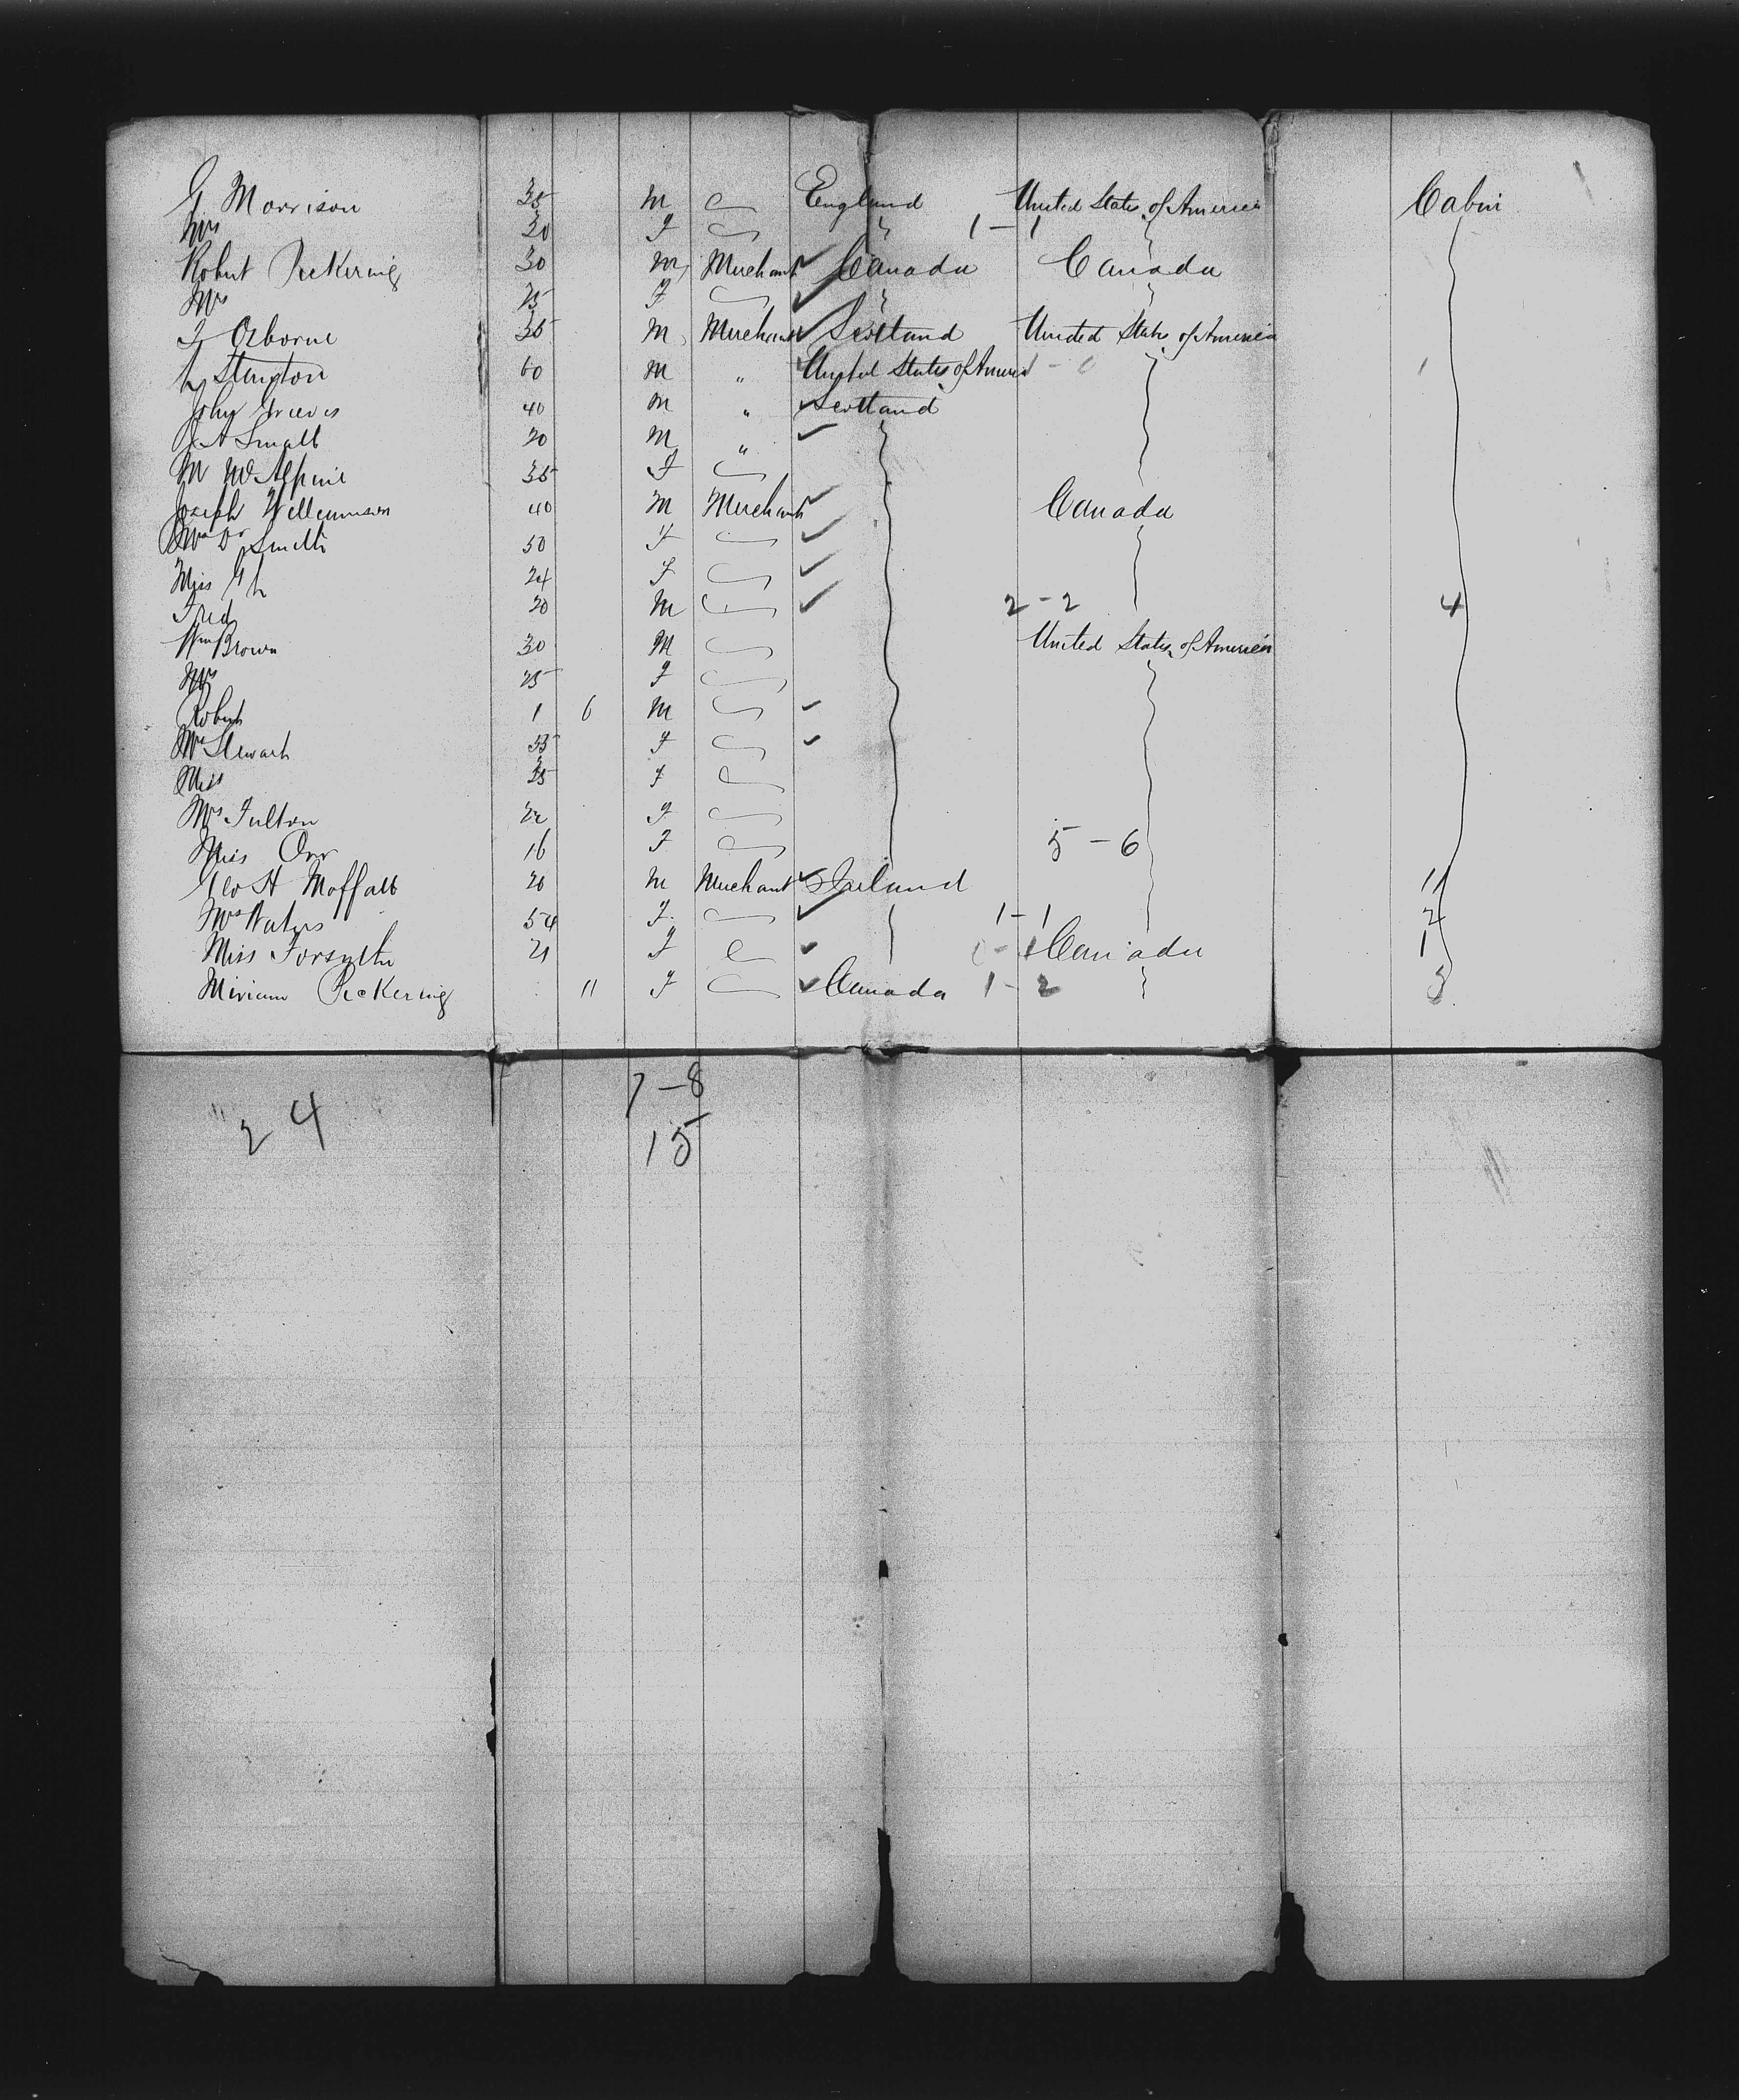 G Morrison 35 M England United States of America Cabin
Mrs 30 F " 1 - 1 "
Robert Pickering 30 M Merchant Canada Canada
Mrs 25 F " "
Osborne 35 M Merchant Scotland United States of America
60 M " United States of America
John 40 M " Scotland
A Small 20 M "
M McAlpine 35 F
Joseph Williamson 40 M Merchant Canada
Mrs Dr Smith 50 F
Miss 24 F
Fred 20 M 2 - 2 4
Wm Brown 30 M United States of America
Mrs 25 F
Robert 1 6 M
Mrs Stewart 55 F
Miss 25 F
Mrs Fulton 22 F
Miss Orr 16 F 5 - 6
Geo H Moffatt 26 M Merchant Ireland 11
Mrs Waters 54 F 1 - 1 2
Miss Forsythe 21 F Canada 1
Miriam Pickering 11 F Canada 1 - 2 3
24 7 - 8
15